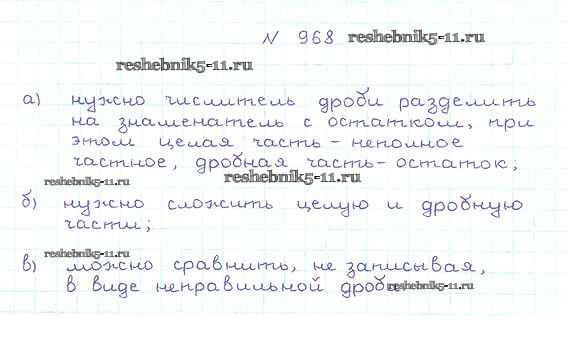 N 968 reshebnik5-11.ru
reshebnik5-11.ru
а) нужно числитель дроби разделить
на знаменатель с остатком, при
этом целая часть - неполное
частное, дробная часть - остаток;
reshebnik5-11.ru reshebnik5-11.ru
б) нужно сложить целую и дробную
части;
reshebnik5-11.ru
в) можно сравнить, не записывая,
в виде неправильной дроби.
reshebnik5-11.ru